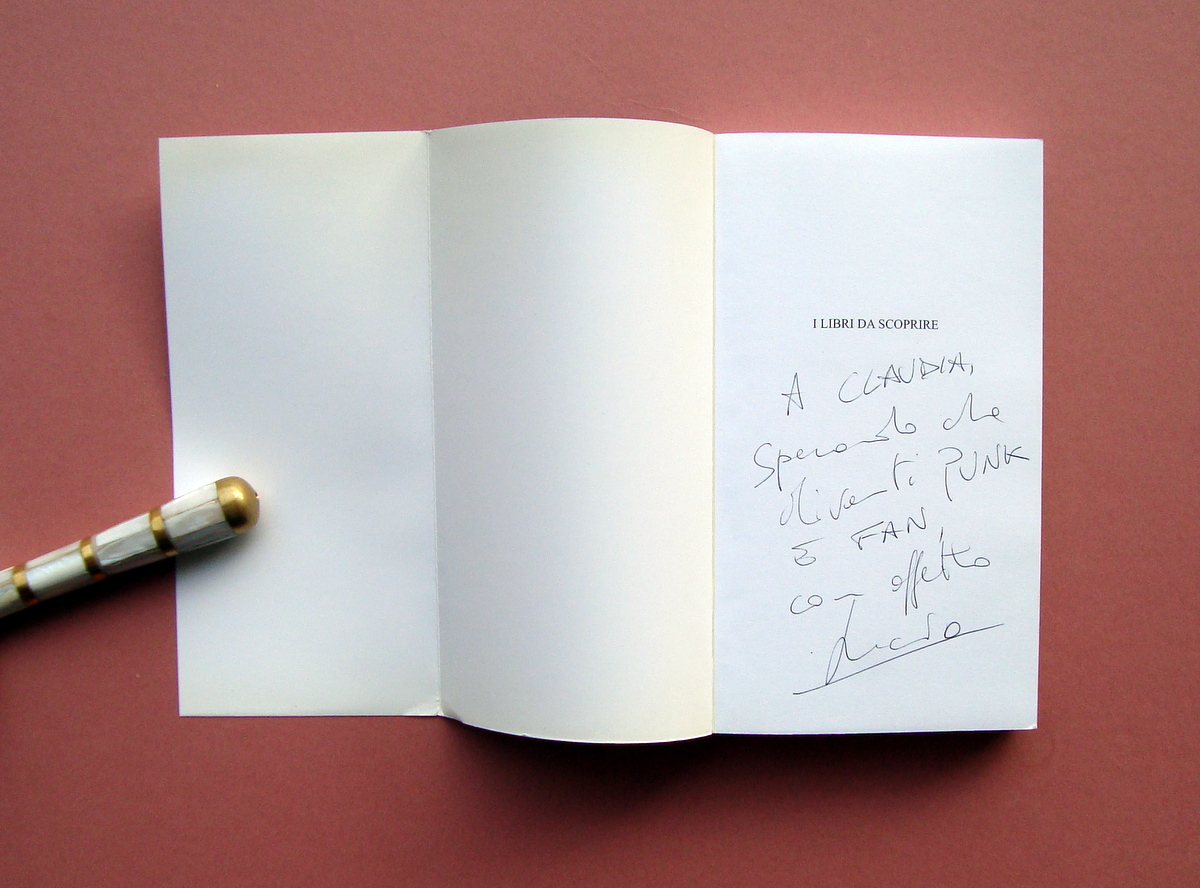 I LIBRI DA SCOPRIRE
A CLAUDIA,
Sperando che
diventi PUNK
E FAN,
con affetto